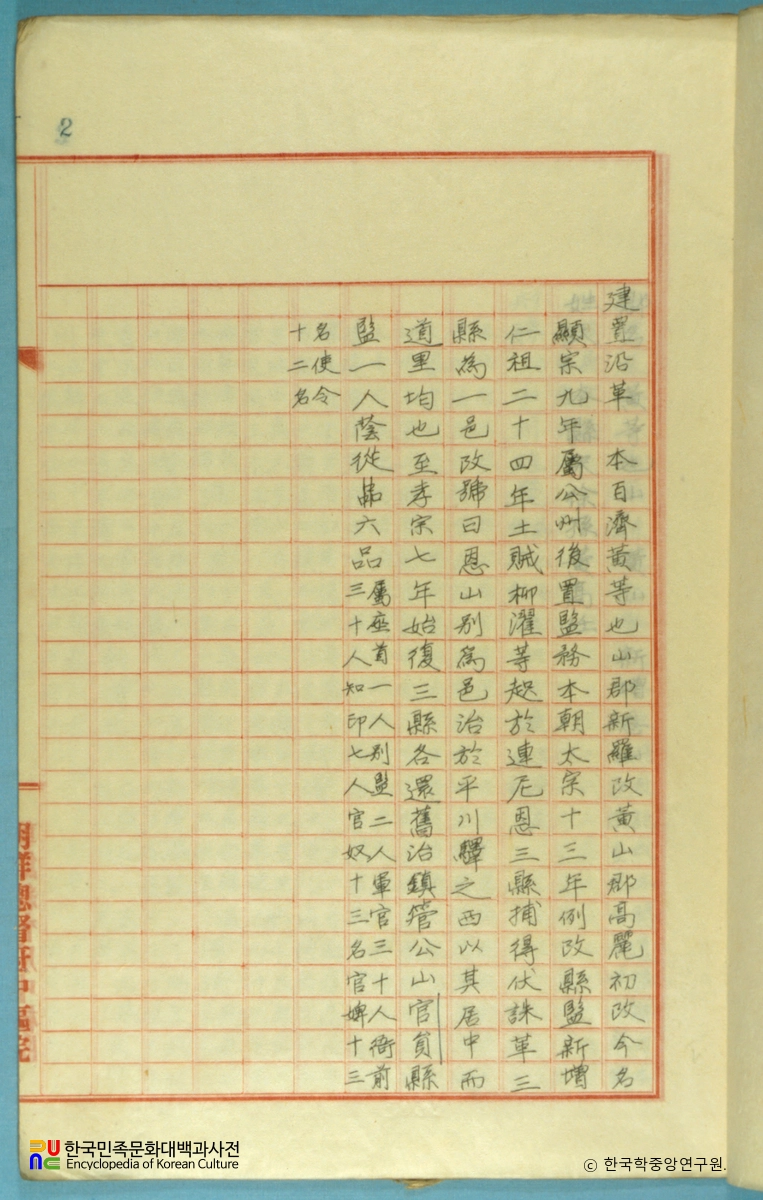 2
建置沿革　本百濟黃等也山郡新羅改黃山郡高麗初改今名
顯宗九年屬公州後置監務本朝太宗十三年例改縣監新增
仁祖二十四年土賊柳濯等起於連尼恩三縣捕得伏誅革三
縣為一邑改號曰恩山別為邑治於平川驛之西以其居中而
道里均也至孝宗七年始復三縣各還舊治鎮管公山官員縣
監一人蔭從六品屬座首一人別監二人軍官三十人衙前
三十人知印七人官奴十三名官婢十三
名使令
十二名
朝鮮總督府中樞院
한국민족문화대백과사전
Encyclopedia of Korean Culture
© 한국학중앙연구원.